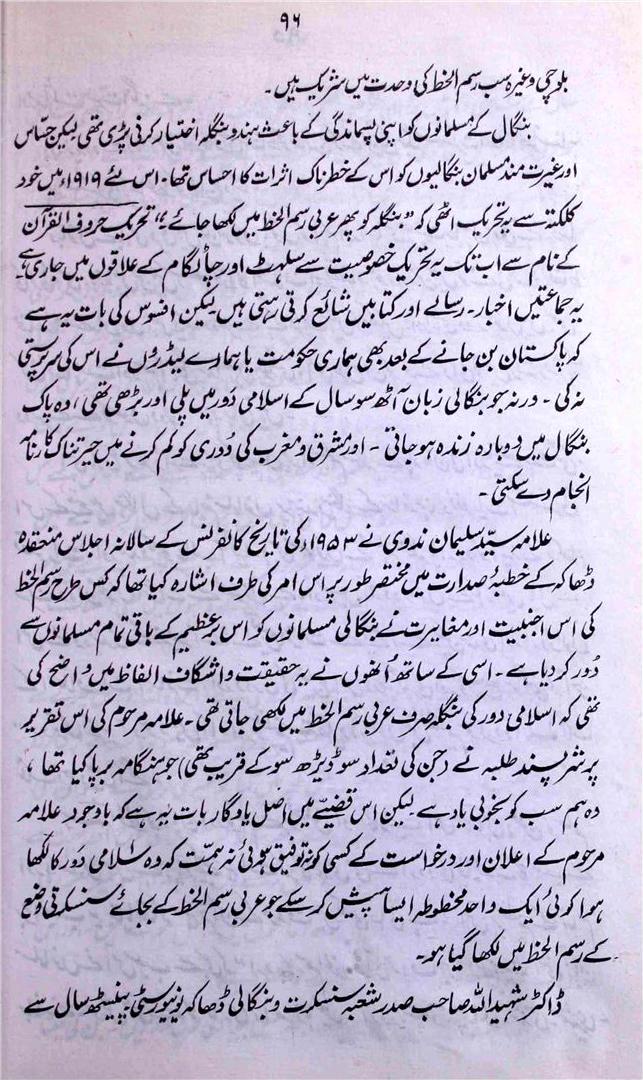 ۹۶
بلوچی وغیرہ سب رسم الخط کی وحدت میں شریک ہیں۔
بنگال کے مسلمانوں کو اپنی پسماندگی کے باعث ہندو بنگلہ اختیار کرنی پڑی تھی لیکن حسّاس
اور غیرت مند مسلمان بنگالیوں کو اس کے خطرناک اثرات کا احساس تھا۔ اس لئے ۱۹۱۹ء میں خود
کلکتہ سے یہ تحریک اٹھی کہ "بنگلہ کو پھر عربی رسم الخط میں لکھا جائے"، تحریک حروف القرآن
کے نام سے اب تک یہ تحریک خصوصیت سے سلہٹ اور چاٹگام کے علاقوں میں جاری ہے
یہ جماعتیں اخبار۔ رسالے اور کتابیں شائع کرتی رہتی ہیں لیکن افسوس کی بات یہ ہے
کہ پاکستان بن جانے کے بعد بھی ہماری حکومت یا ہمارے لیڈروں نے اس کی سرپرستی
نہ کی۔ ورنہ جو بنگالی زبان آٹھ سو سال کے اسلامی دور میں پلی اور بڑھی تھی، وہ پاک
بنگال میں دوبارہ زندہ ہو جاتی۔ اور مشرق و مغرب کی دُوری کو کم کرنے میں حیرتناک کارنامہ
انجام دے سکتی۔
علامہ سیّد سلیمان ندوی نے ۱۹۵۳ء کی تاریخ کانفرنس کے سالانہ اجلاس منعقدہ
ڈھاکہ کے خطبۂ صدارت میں مختصر طور پر اس امر کی طرف اشارہ کیا تھا کہ کس طرح رسم الخط
کی اس اجنبیت اور مغایرت نے بنگالی مسلمانوں کو اس برِعظیم کے باقی تمام مسلمانوں سے
دُور کر دیا ہے۔ اسی کے ساتھ اُنھوں نے یہ حقیقت واشگاف الفاظ میں واضح کی
تھی کہ اسلامی دور کی بنگلہ صرف عربی رسم الخط میں لکھی جاتی تھی۔ علامہ مرحوم کی اس تقریر
پر شرپسند طلبہ نے (جن کی تعداد سو ڈیڑھ سو کے قریب تھی) جو ہنگامہ برپا کیا تھا،
وہ ہم سب کو بخوبی یاد ہے لیکن اس قضیّے میں اصل یادگار بات یہ ہے کہ باوجود علامہ
مرحوم کے اعلان اور درخواست کے کسی کو نہ توفیق ہوئی نہ ہمّت کہ وہ اسلامی دَور کا لکھا
ہوا کوئی ایک واحد مخطوطہ ایسا پیش کر سکے جو عربی رسم الخط کے بجائے سنسکرتی وضع
کے رسم الخط میں لکھا گیا ہو۔
ڈاکٹر شہید اللہ صاحب صدر شعبہ سنسکرت و بنگالی ڈھاکہ یونیورسٹی پینسٹھ سال سے